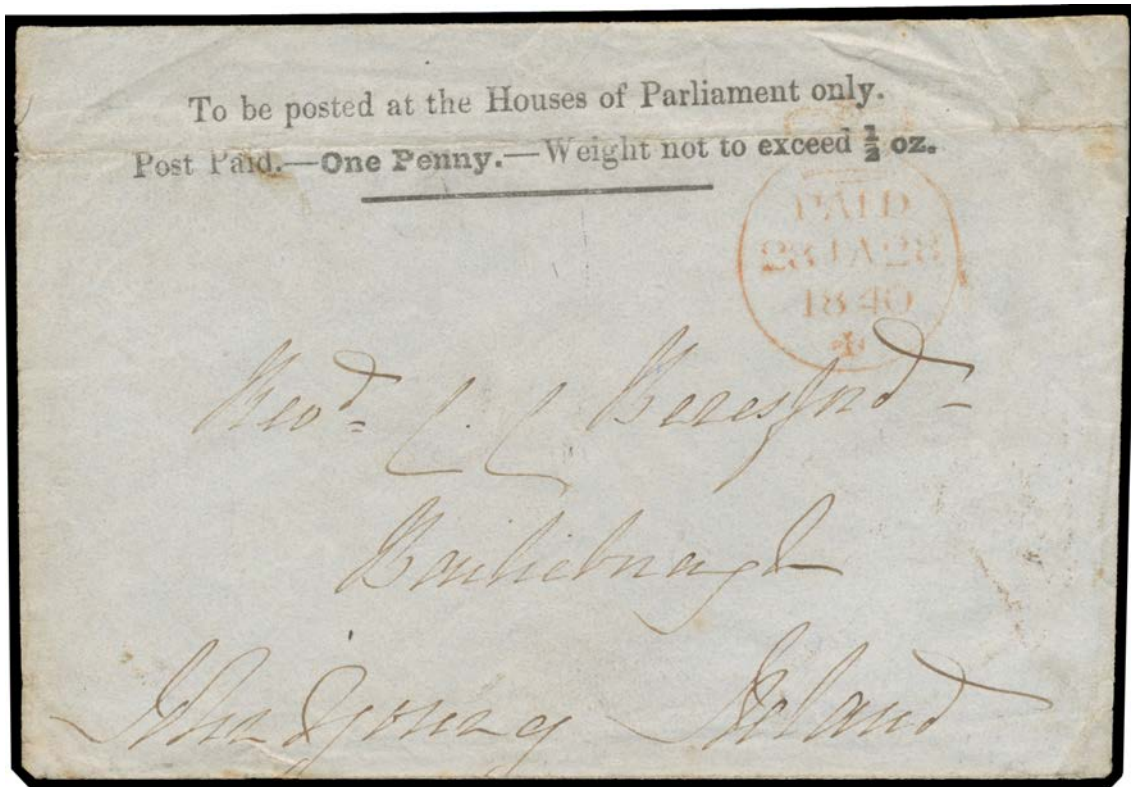 To be posted at the Houses of Parliament only.
Post Paid.—One Penny.—Weight not to exceed ½ oz.
PAID
28 JA 28
1840
Revd. C. C. Beresford
Bailieborough
John Young Ireland